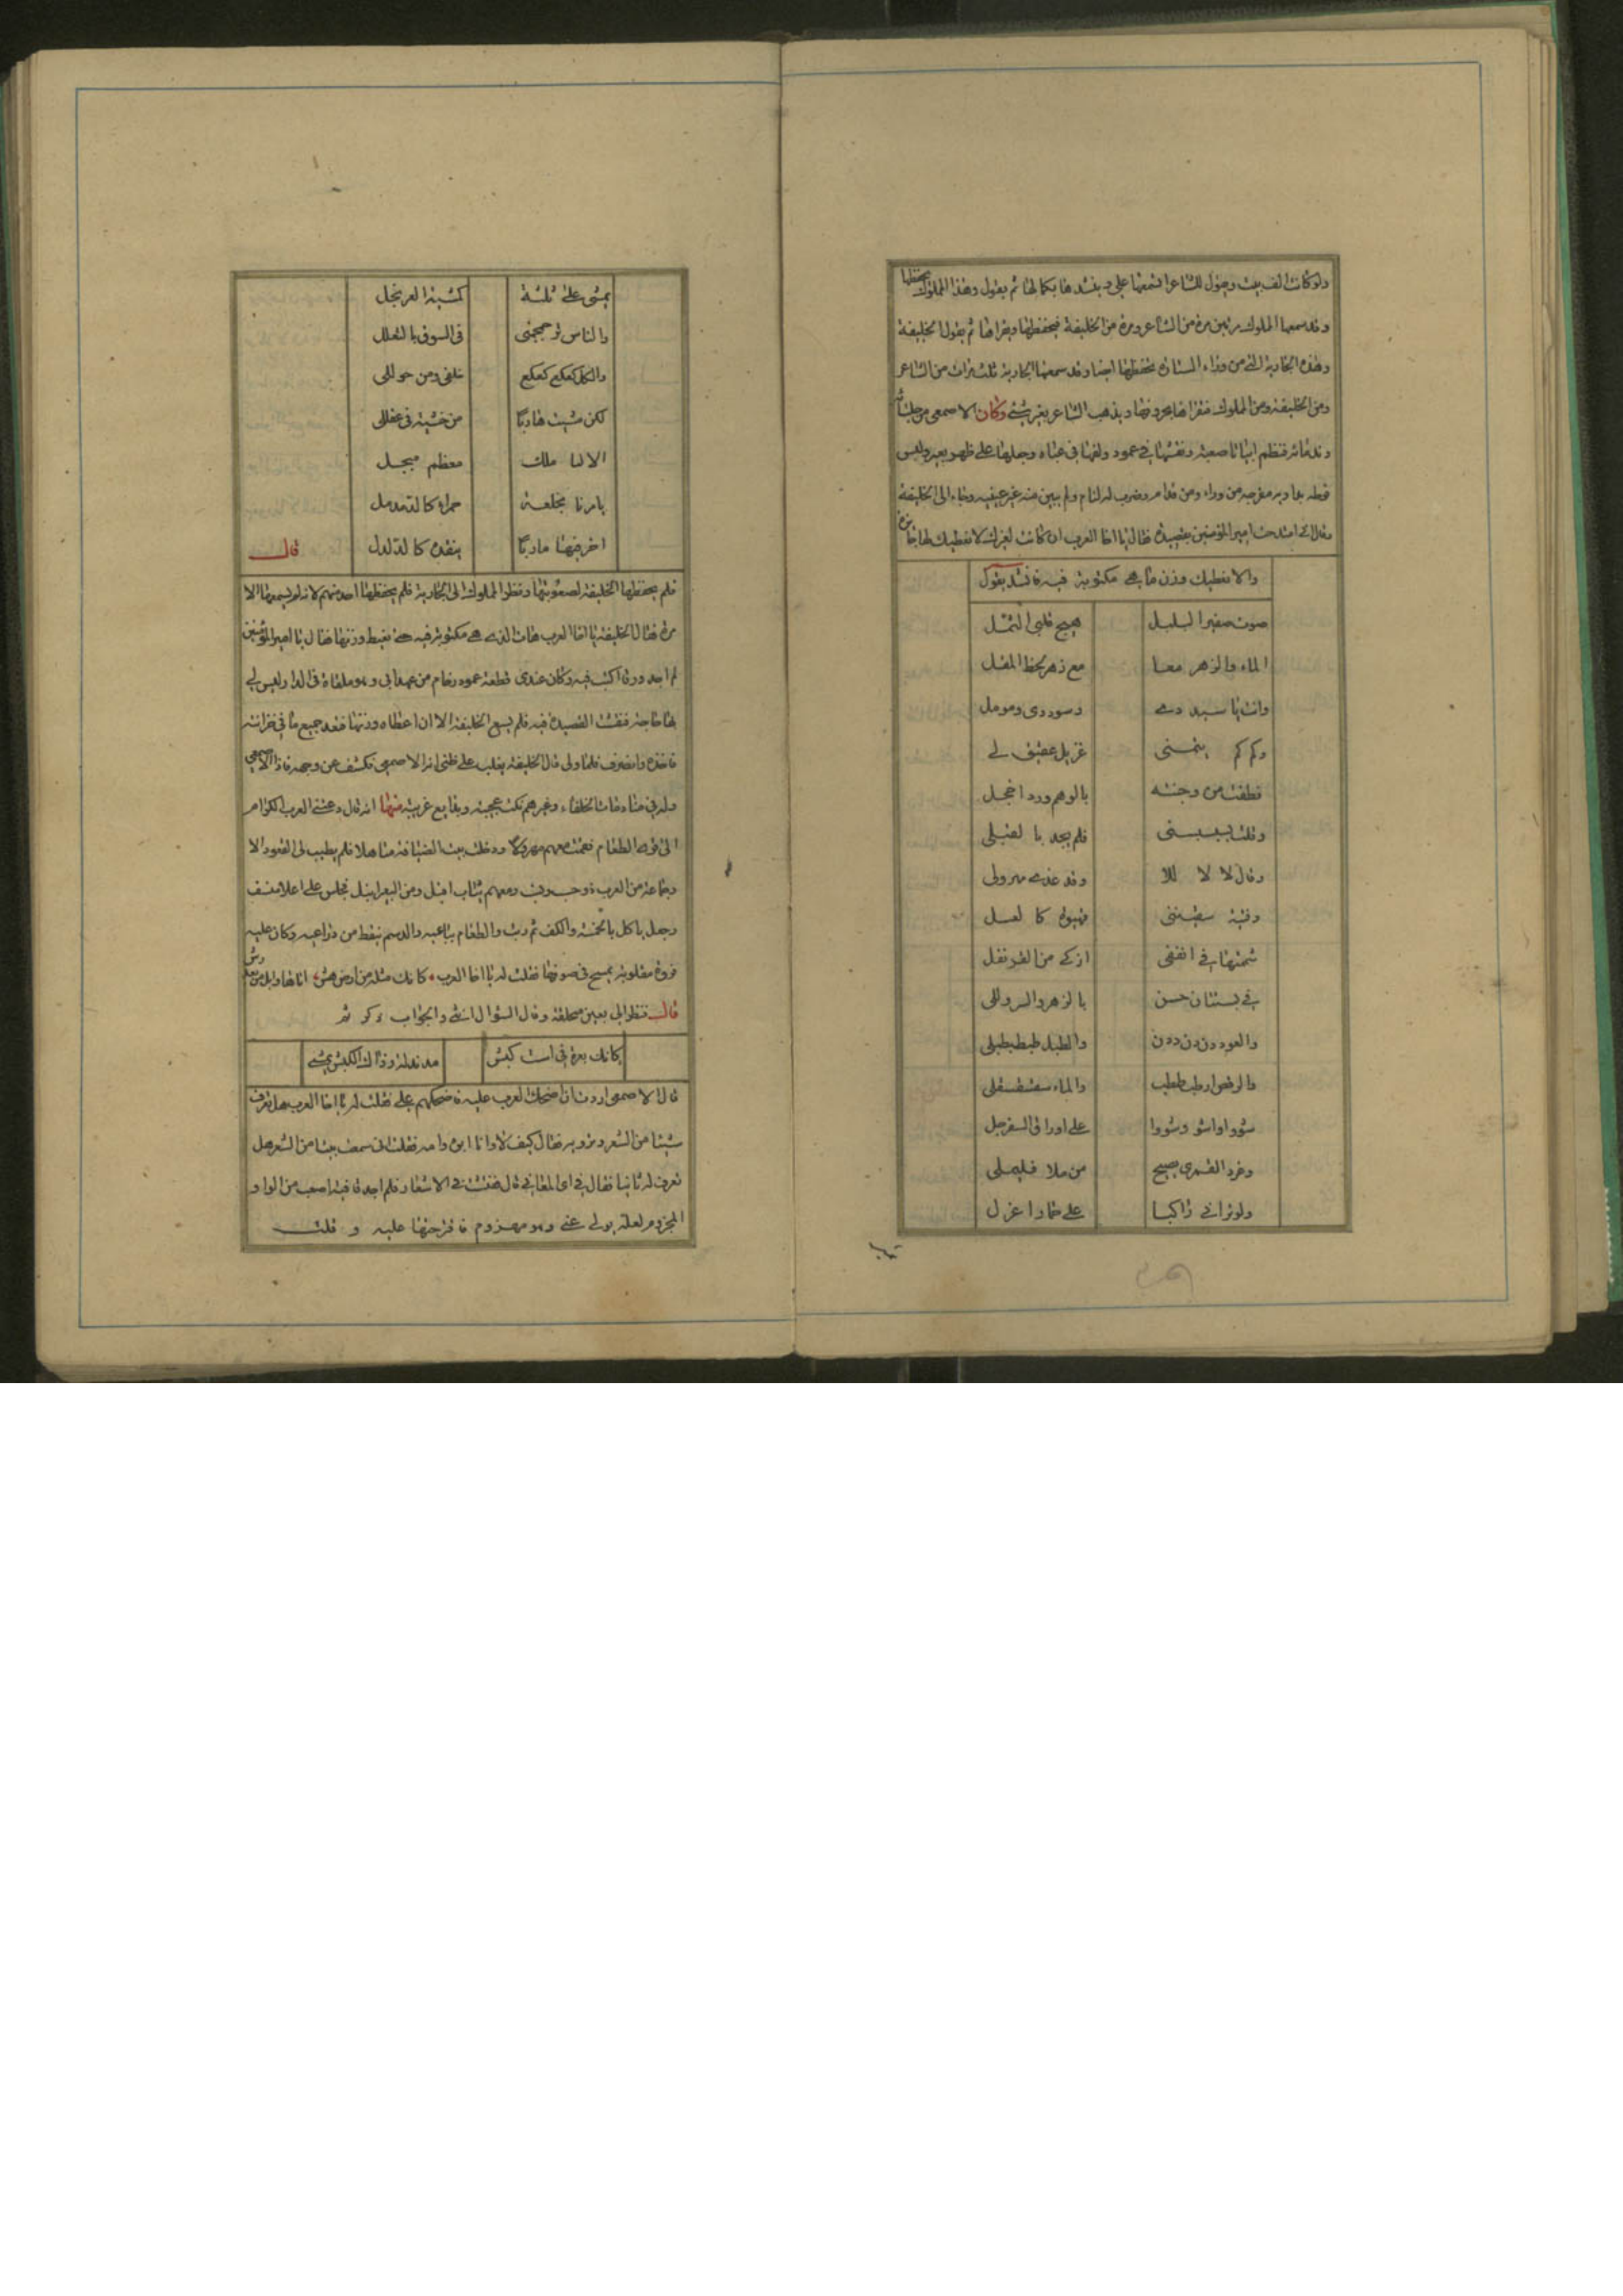 ولو كانت الف بيت ويقول للشاعر اسمعها علي وينشدها بكمالها ثم يقول وهذا المملوك يحفظها
وقد سمعها المملوك مرتين مرة من الشاعر ومرة من الخليفة فيحفظها ويقراها ثم يقول الخليفة
وهذه الجارية التي من وراء الستارة تحفظها ايضا وقد سمعتها الجارية ثلث مرات من الشاعر
ومن الخليفة ومن المملوك فتقراها بحروفها ويذهب الشاعر بغير شئ وكان الاصمعي من جلسائه
وندمائه فنظم ابياتا صعبة ونقشها في عمود ولفها في عباه وجعلها على ظهر بعير ولبس
مفرجه من وراء ومن قدام وضرب له لثام ولم يبين منه غير عينيه وجاء الى الخليفة
وقال اني امتدحت امير المؤمنين بقصيدة فقال يا اخا العرب ان كانت لغيرك لا نعطيك لها جائزة
والا نعطيك وزن ما هي مكتوبة فيه فانشد يقول
صوت صفير البلبل هيج قلبي الثمل
الماء والزهر معا مع زهر لحظ المقل
وانت يا سيد دي وسوددي ومومل
وكم كم يتمني غزيل عقيق لي
قطفت من وجنته بالوهم ورد اخجل
وقلت بسبسبني فلم يجد بالقبلي
وقال لا لا لا للا وقد غدي مهرولي
وفتية سقينني قهيوة كالعسل
شممتها في انففي ازكي من القرنفل
في بستان حسن بالزهر والسروللي
والعود دن دن ددن والطبل طبطبطبلي
والرقص ارطبطبطب والماء سقسقسقلي
شووا واشو وشووا على اوراق السفرجل
وغرد القمري يصيح من ملا فليملي
ولو تراني راكبا على حمار اعزل
يمشي على ثلثة كمشية العرنجل
والناس ترجمجمني في السوق بالتعلل
والكل كعكع كعكع خلفي ومن حوللي
لكن مشيت هاربا من خشية في عقللي
الا لنا ملك معظم مبجل
يامرنا بخلعة حمراء كالدمدمل
اجر فيها ماربا بنقدة كالدلدل قال
فلم يحفظها الخليفة لصعوبتها ونظر المملوك الى الجارية فلم يحفظها احد منهم لانه لم يسمعها الا
مرة فقال الخليفة يا اخا العرب هات الذي هي مكتوبة فيه حتى نعيط وزنها فقال يا امير المؤمنين
لم اجد ورقا اكتب فيه وكان عندي قطعة عمود رخام من عهد ابي وهو ملقاة في الدار وليس لي
بها حاجة فنقشت القصيدة فيه فلم يسع الخليفة الا ان اعطاه وزنها فنفد جميع ما في خزانته
فاخذه وانصرف فلما ولى قال الخليفة يغلب على ظني انه الاصمعي فكشف عن وجهه فاذا الاصمعي
وله في منادمات الخلفاء وغيرهم نكت عجيبة وبقايع غريبة منها انه قال دعتني العرب الكرام
الى الطعام فقمت معهم ودخلت بيت الضيافة فلم يطيب لي القعود الا
وجماعة من العرب ومعهم شاب اقبل ومن البعر ابتل فجلس على اعلا منسف
وجعل ياكل بالخمسة والكف ثم دب والطعام بباعيه والدسم ينقط من ذراعيه وكان عليه
فروة مقلوبة يمسح في صوفها فقلت له يا اخا العرب كانك مثلة من ارض هش اتاها وابل من بعد رش
قال فنظر الي بعين محلقة وقال السؤال انثى والجواب ذكر ثم
كانك بعرة في است كبش مدندلة وذاك الكبش يمشي
قال الاصمعي اردت ان اضحك العرب عليه فاضحكهم علي فقلت له يا اخا العرب هل تعرف
شيئا من الشعر وترويه فقال كيف لا وانا ابن وامه فقلت اني سمعت بيتا من الشعر هل
تعرف له ثانيا فقال في اي المعاني قال ففتشت في الاشعار فلم اجد قافية اصعب من الواو
المجزوم لعله يولي عني وهو مهزوم فاقترحتها عليه و قلت